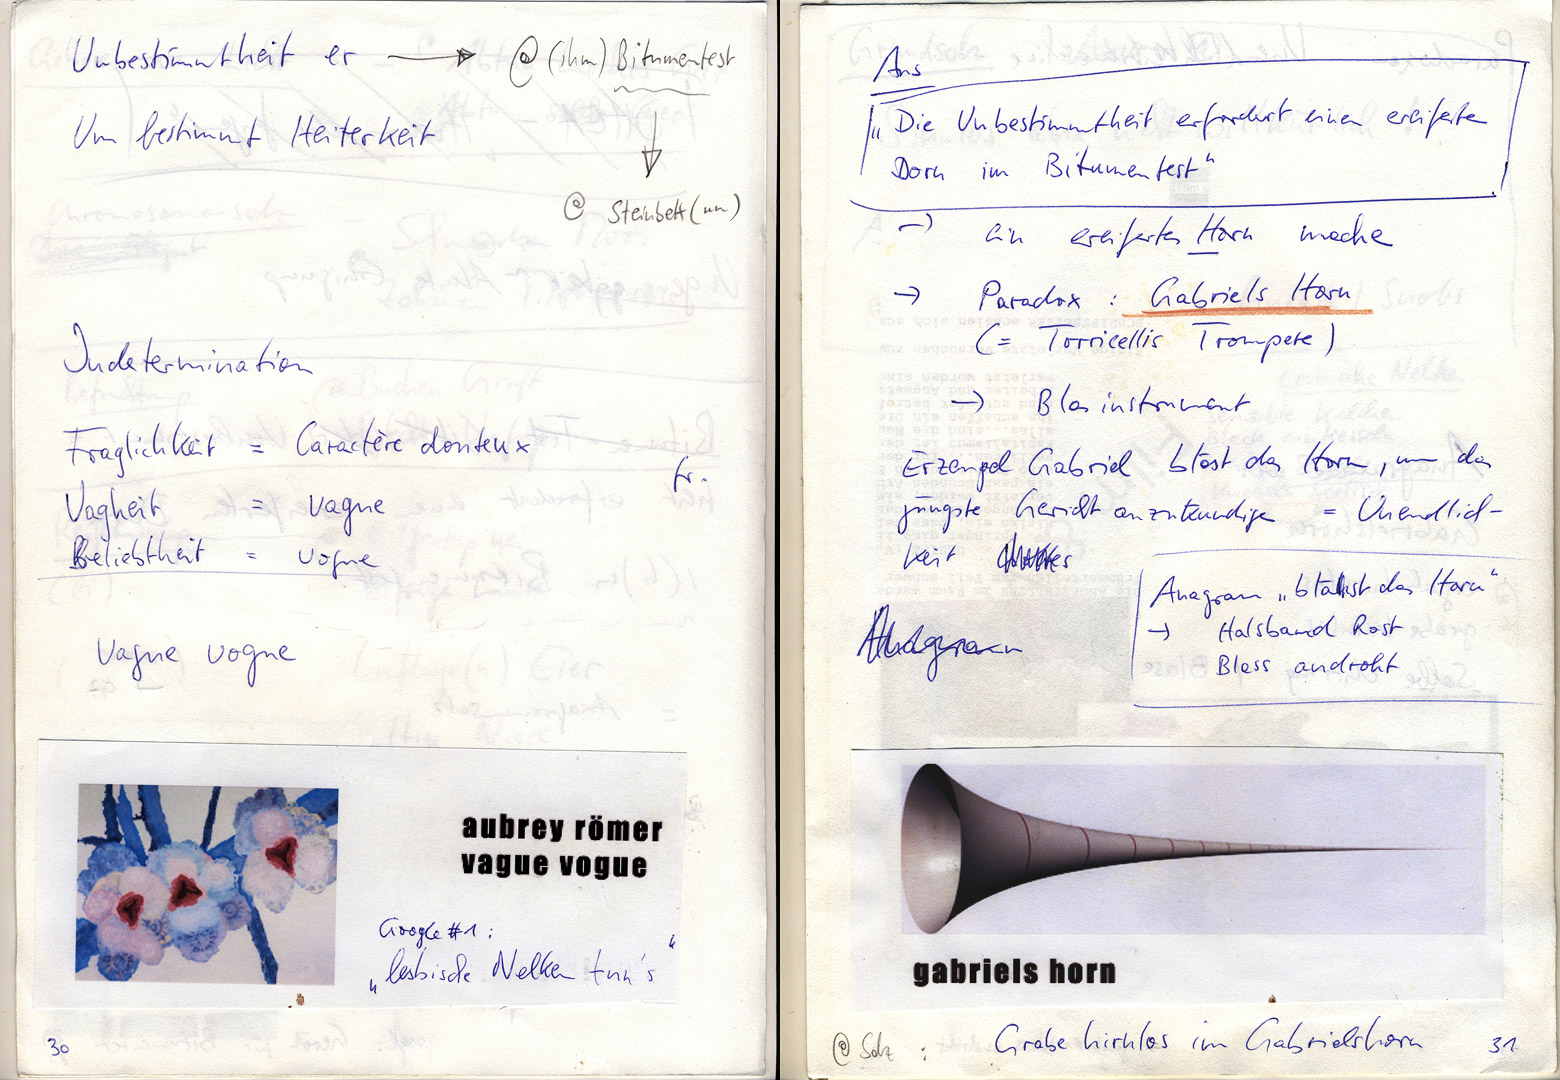 Unbestimmtheit er → @ (ihm) Bitumentest
Um bestimmt Heiterkeit
@ Steinbett (un)
Indetermination
Fraglichkeit = Caractère douteux
fr.
Vagheit = vague
Beliebtheit = vogue
vague vogue
aubrey römer
vague vogue
Google #1:
„lesbische Nelken tun's"
30
Aus
„Die Unbestimmtheit erfordert einen ereiferten
Dorn im Bitumentest"
→ ein ereifertes Horn mache
→ Paradox : Gabriels Horn
(= Torricellis Trompete)
→ Blasinstrument
Erzengel Gabriel bläst das Horn, um das
jüngste Gericht anzukündige = Unendlich-
keit
Anagram „bläst das Horn"
→ Halsband Rost
Blass androht
gabriels horn
@ Satz : Grabe hirnlos im Gabrielshorn
31